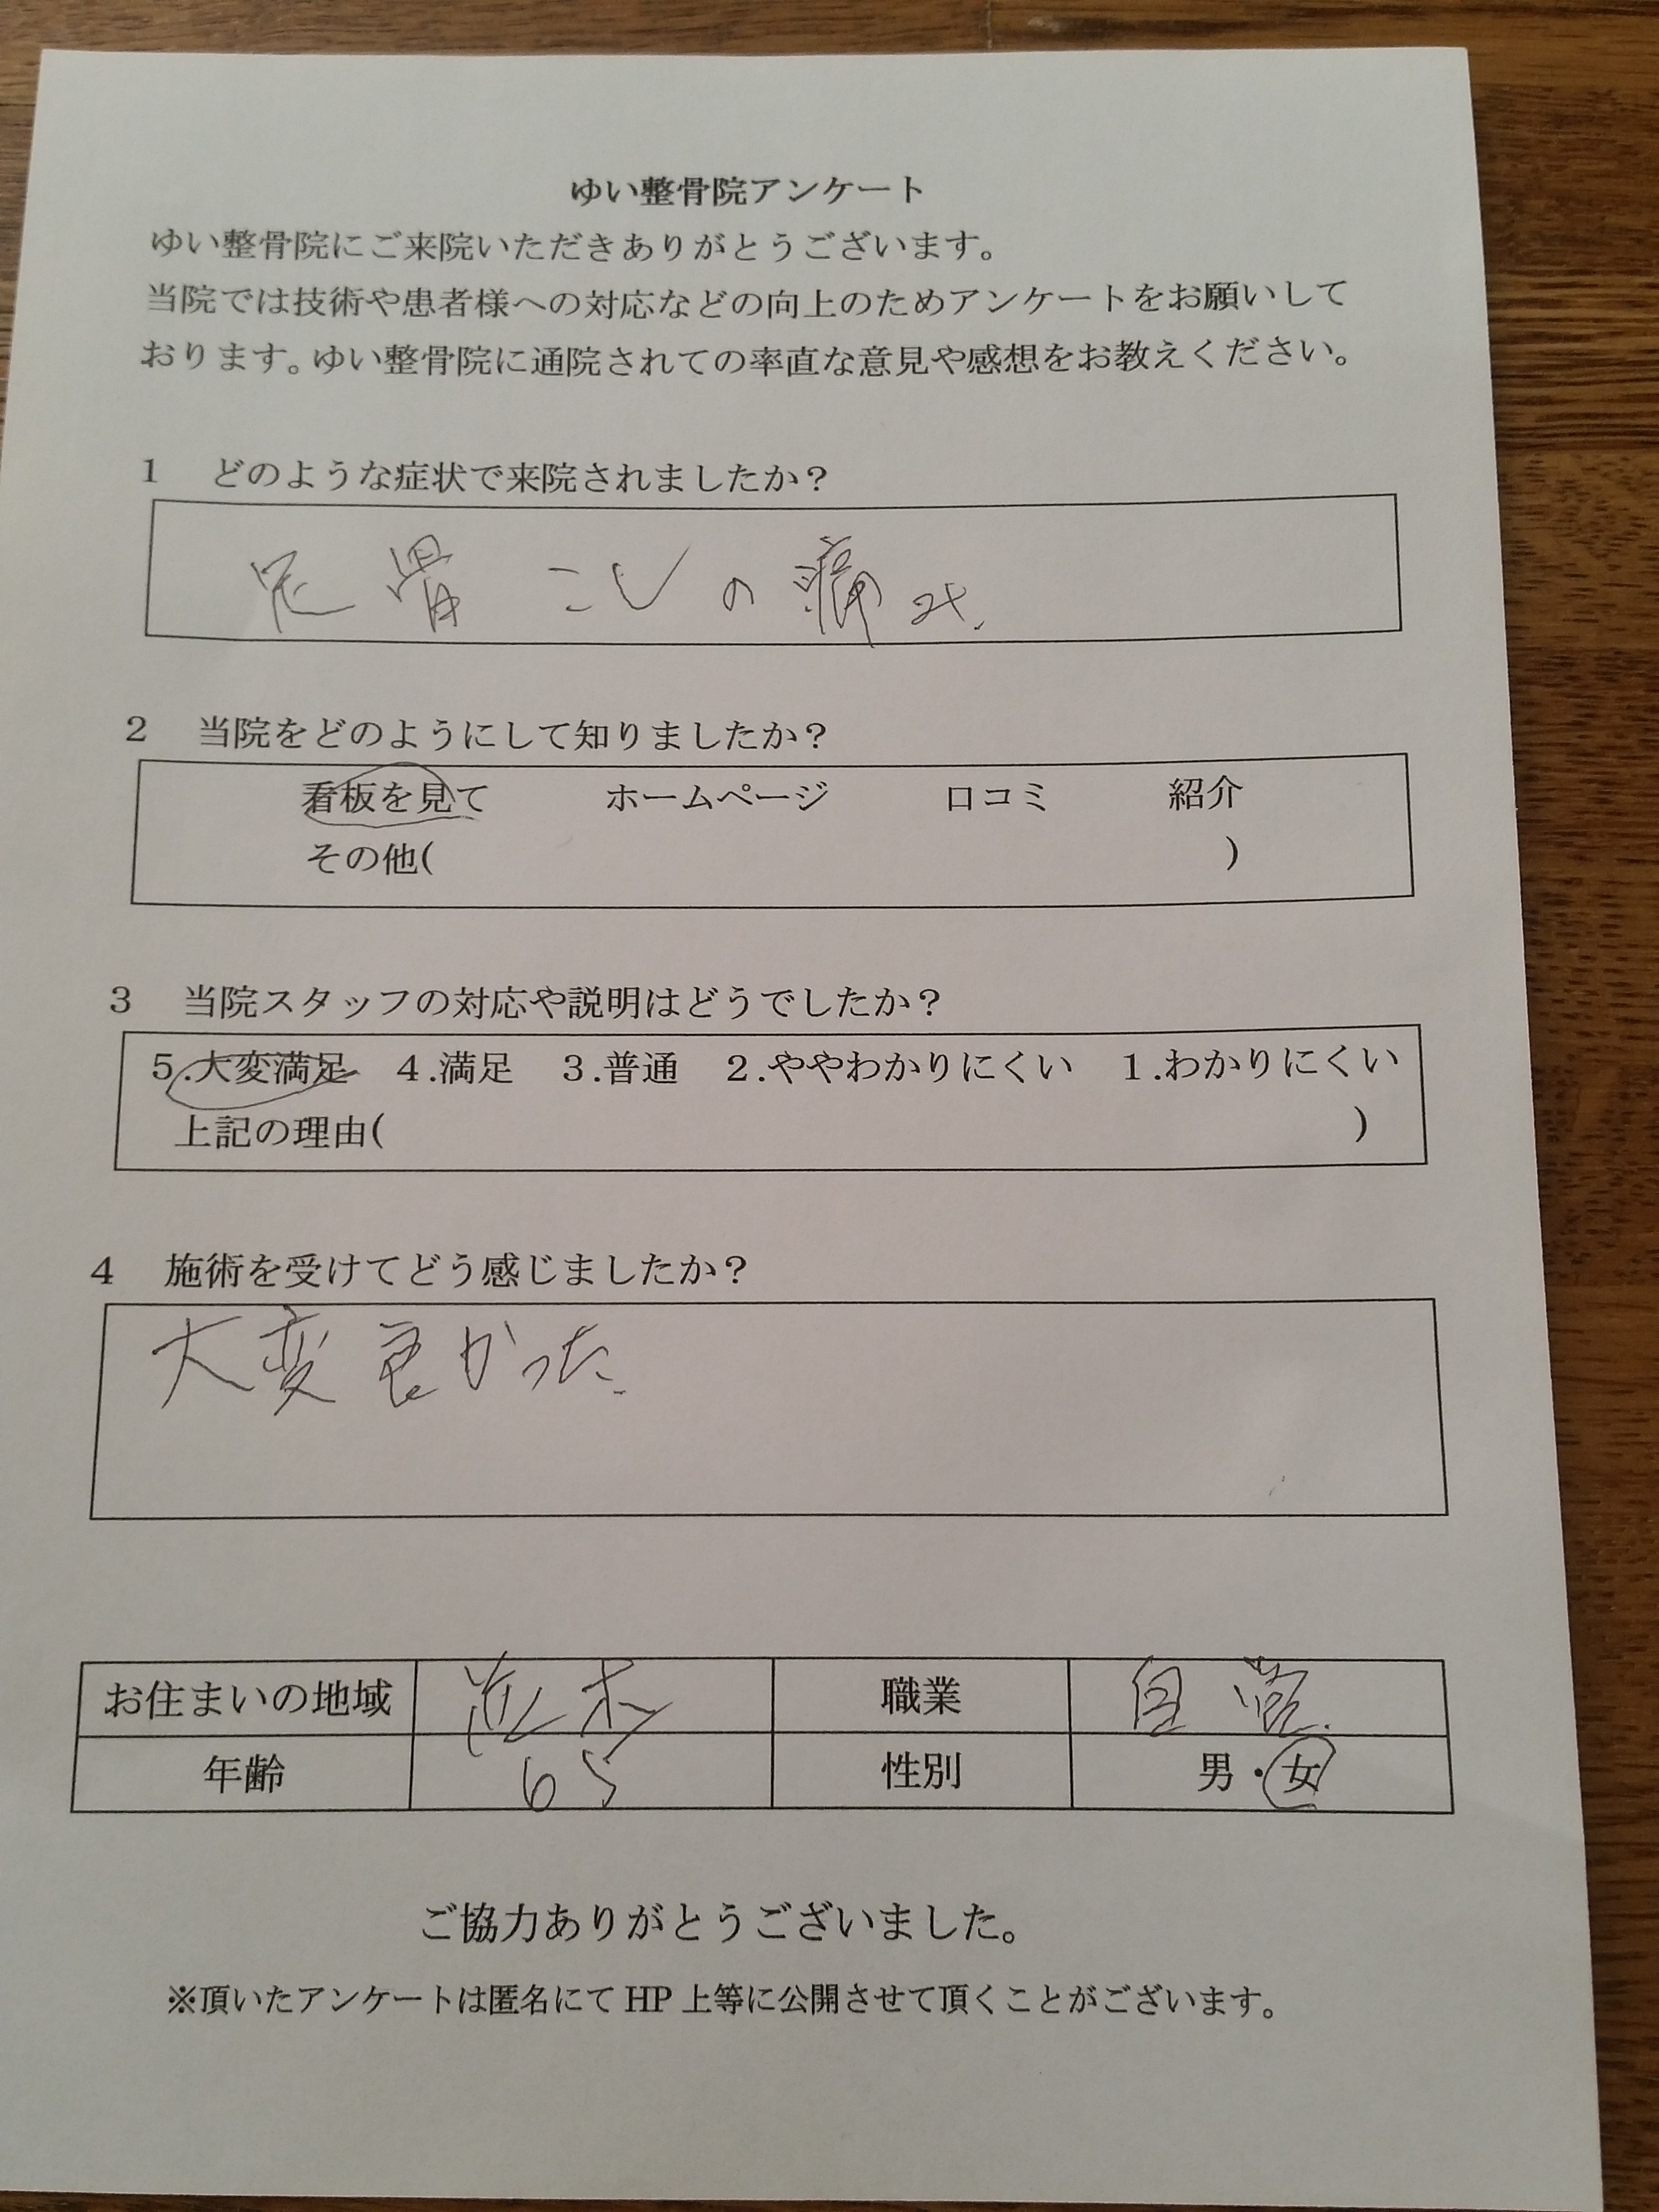 ゆい整骨院アンケート
ゆい整骨院にご来院いただきありがとうございます。
当院では技術や患者様への対応などの向上のためアンケートをお願いして
おります。ゆい整骨院に通院されての率直な意見や感想をお教えください。
1 どのような症状で来院されましたか？
足 骨 こしの痛み.
2 当院をどのようにして知りましたか？
看板を見て ホームページ 口コミ 紹介
その他( )
3 当院スタッフの対応や説明はどうでしたか？
5.大変満足 4.満足 3.普通 2.ややわかりにくい 1.わかりにくい
上記の理由( )
4 施術を受けてどう感じましたか？
大変良かった.
お住まいの地域 職業 自営.
年齢 65 性別 男・女
ご協力ありがとうございました。
※頂いたアンケートは匿名にて HP 上等に公開させて頂くことがございます。